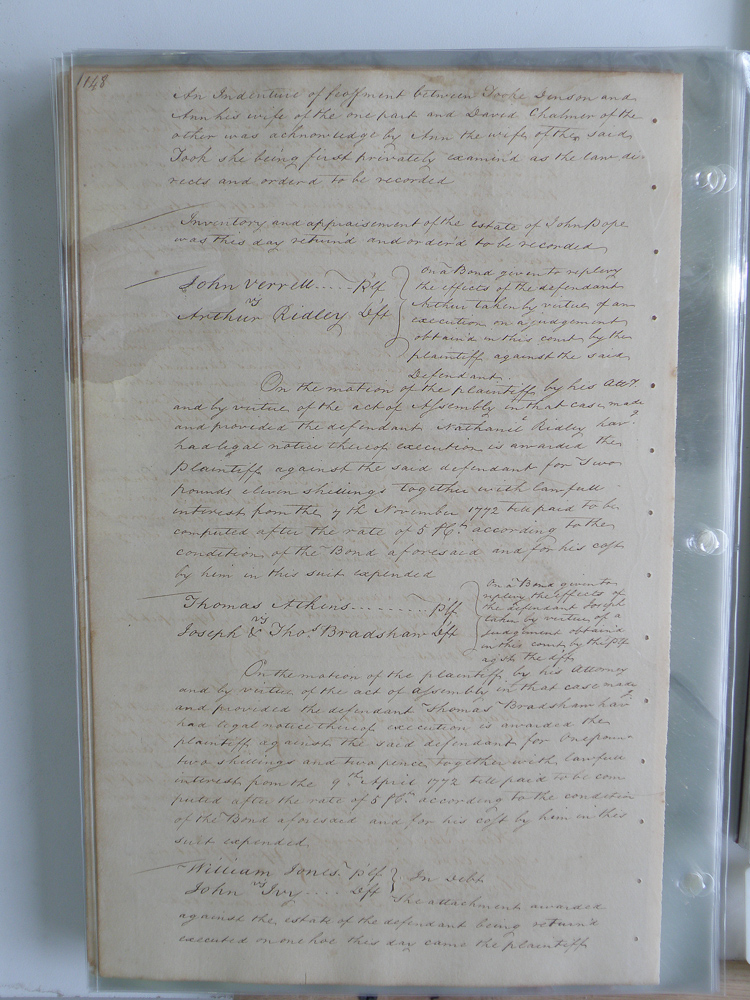 1148
An Indenture of feoffment between Tooke Denson and
Ann his wife of the one part and David Chalmer of the
other was acknowledge by Ann the wife of the said
Took she being first privately examin'd as the law di-
rects and order'd to be recorded
Inventory and appraisement of the estate of John Pope
was this day return'd and order'd to be recorded
John Verrell..... Plf
vs
Arthur Ridley Dft
On a Bond given to replivy
the effects of the defendant
Arthur taken by virtue of an
execution on a judgement
obtain'd in this court by the
plaintiff against the said
Defendant
On the motion of the plaintiff by his Atty
and by virtue of the act of Assembly in that case made
and provided the defendant Nathaniel Ridley hav.g
had legal notice thereof execution is awarded the
Plaintiff against the said defendant for Two
pounds eleven shillings together with lawfull
interest from the 7th November 1772 till paid to be
computed after the rate of 5 P Ct. according to the
condition of the Bond aforesaid and for his cost
by him in this suit expended
Thomas Atkins........ Plf
vs
Joseph & Thos. Bradshaw Dft
On a Bond given to
replivy the effects of
the defendant Joseph
taken by virtue of a
Judgement obtain'd
in this court by the Plf
agst. the dfts
On the motion of the plaintiff by his Attorney
and by virtue of the act of assembly in that case made
and provided the defendant Thomas Bradshaw hav.g
had legal notice thereof execution is awarded the
plaintiff against the said defendant for One poun
two shillings and two pence together with lawfull
interest from the 9th April 1772 till paid to be com
puted after the rate of 5 P Ct. according to the condition
of the Bond aforesaid and for his cost by him in this
suit expended
William Jones Plf
vs
John Ivy.... Dft
In Debt
The attachment awarded
against the estate of the defendant being return'd
executed on one hoe this day came the plaintiff